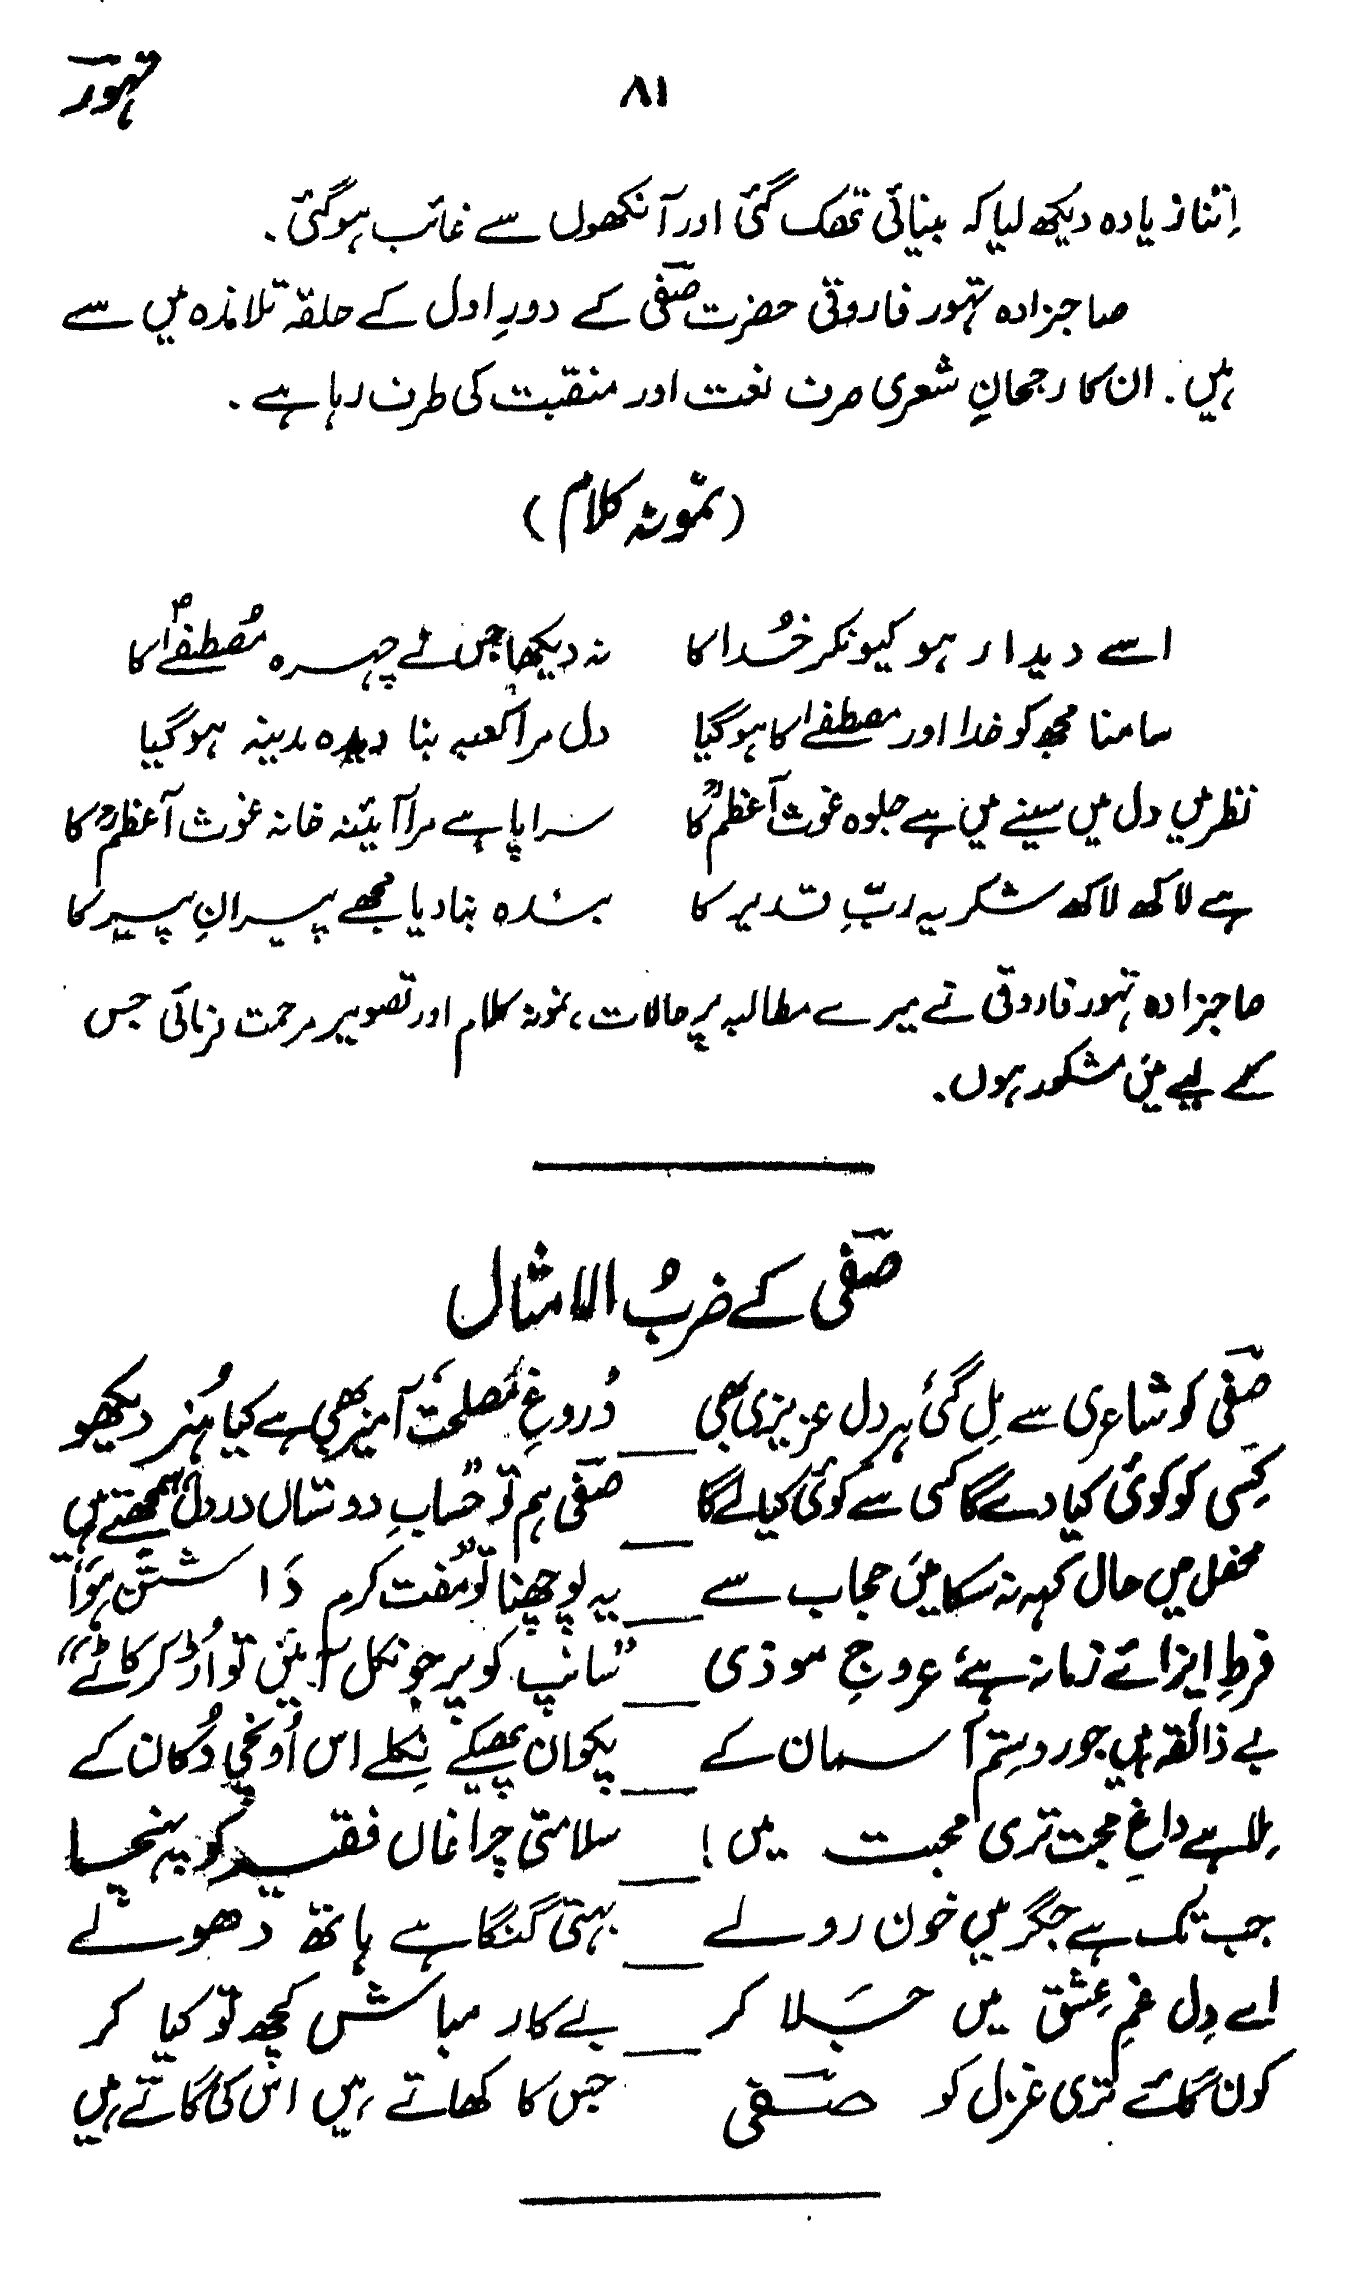 تہورؔ
۸۱
اِتنا زیادہ دیکھ لیا کہ بینائی تھک گئی اور آنکھوں سے غائب ہوگئی.
صاجزادہ تہور فاروقی حضرت صفیؔ کے دورِ اول کے حلقہ تلامذہ میں سے
ہیں. ان کا رجحانِ شعری صرف نعت اور منقبت کی طرف رہا ہے.
(نمونہ کلام)
اسے دیدار ہو کیونکر خُدا کا نہ دیکھا جس نے چہرہ مُصطفےٰؐ کا
سامنا مجھ کو خدا اور مصطفےٰ کا ہوگیا دل مرا کعبہ بنا دیدہ مدینہ ہوگیا
نظر میں دل میں سینے میں ہے جلوہ غوث آعظمؓ کا سراپا ہے مرا آئینہ خانہ غوث آعظمؓ کا
ہے لاکھ لاکھ شکریہ ربِّ قدیر کا بندہ بنا دیا مجھے پیرانِ پیر کا
صاجزادہ تہور فاروقی نے میرے مطالبہ پر حالات، نمونہ کلام اور تصویر مرحمت فرمائی جس
کے لیے میں مشکور ہوں.
صفیؔ کے ضربُ الامثال
صفیؔ کو شاعری سے مِل گئی ہر دل عزیزی بھی — دُروغِ مُصلحت آمیز بھی ہے کیا ہُنر دیکھو
کِسی کو کوئی کیا دے گا کسی سے کوئی کیا لے گا — صفیؔ ہم تو "حسابِ دوستاں در دل" سمجھتے ہیں
محفل میں حال کہہ نہ سکا میں حجاب سے — یہ پوچھنا تو "مُفت کرم دَاشتَن" ہَوا
فرطِ ایزائے زمانہ ہے عروجِ موذی — "سانپ کو پر جو نکل آئیں تو اُڑ کر کاٹے"
بے ذائقہ ہیں جور و سِتم آسمان کے — پکوان پھیکے نِکلے اس اُونچی دُکان کے
مِلا ہے داغِ محبت تری محبت میں! — سلامتی چراغاں فقیر کو پہنچا
جب تک ہے جگر میں خون رولے — بہتی گنگا ہے ہاتھ دھولے
اے دِل غمِ عِشق میں جَلا کر — بے کار مباش کچھ تو کیا کر
کون گائے تری غزل کو صفیؔ جس کا کھاتے ہیں اس کی گاتے ہیں